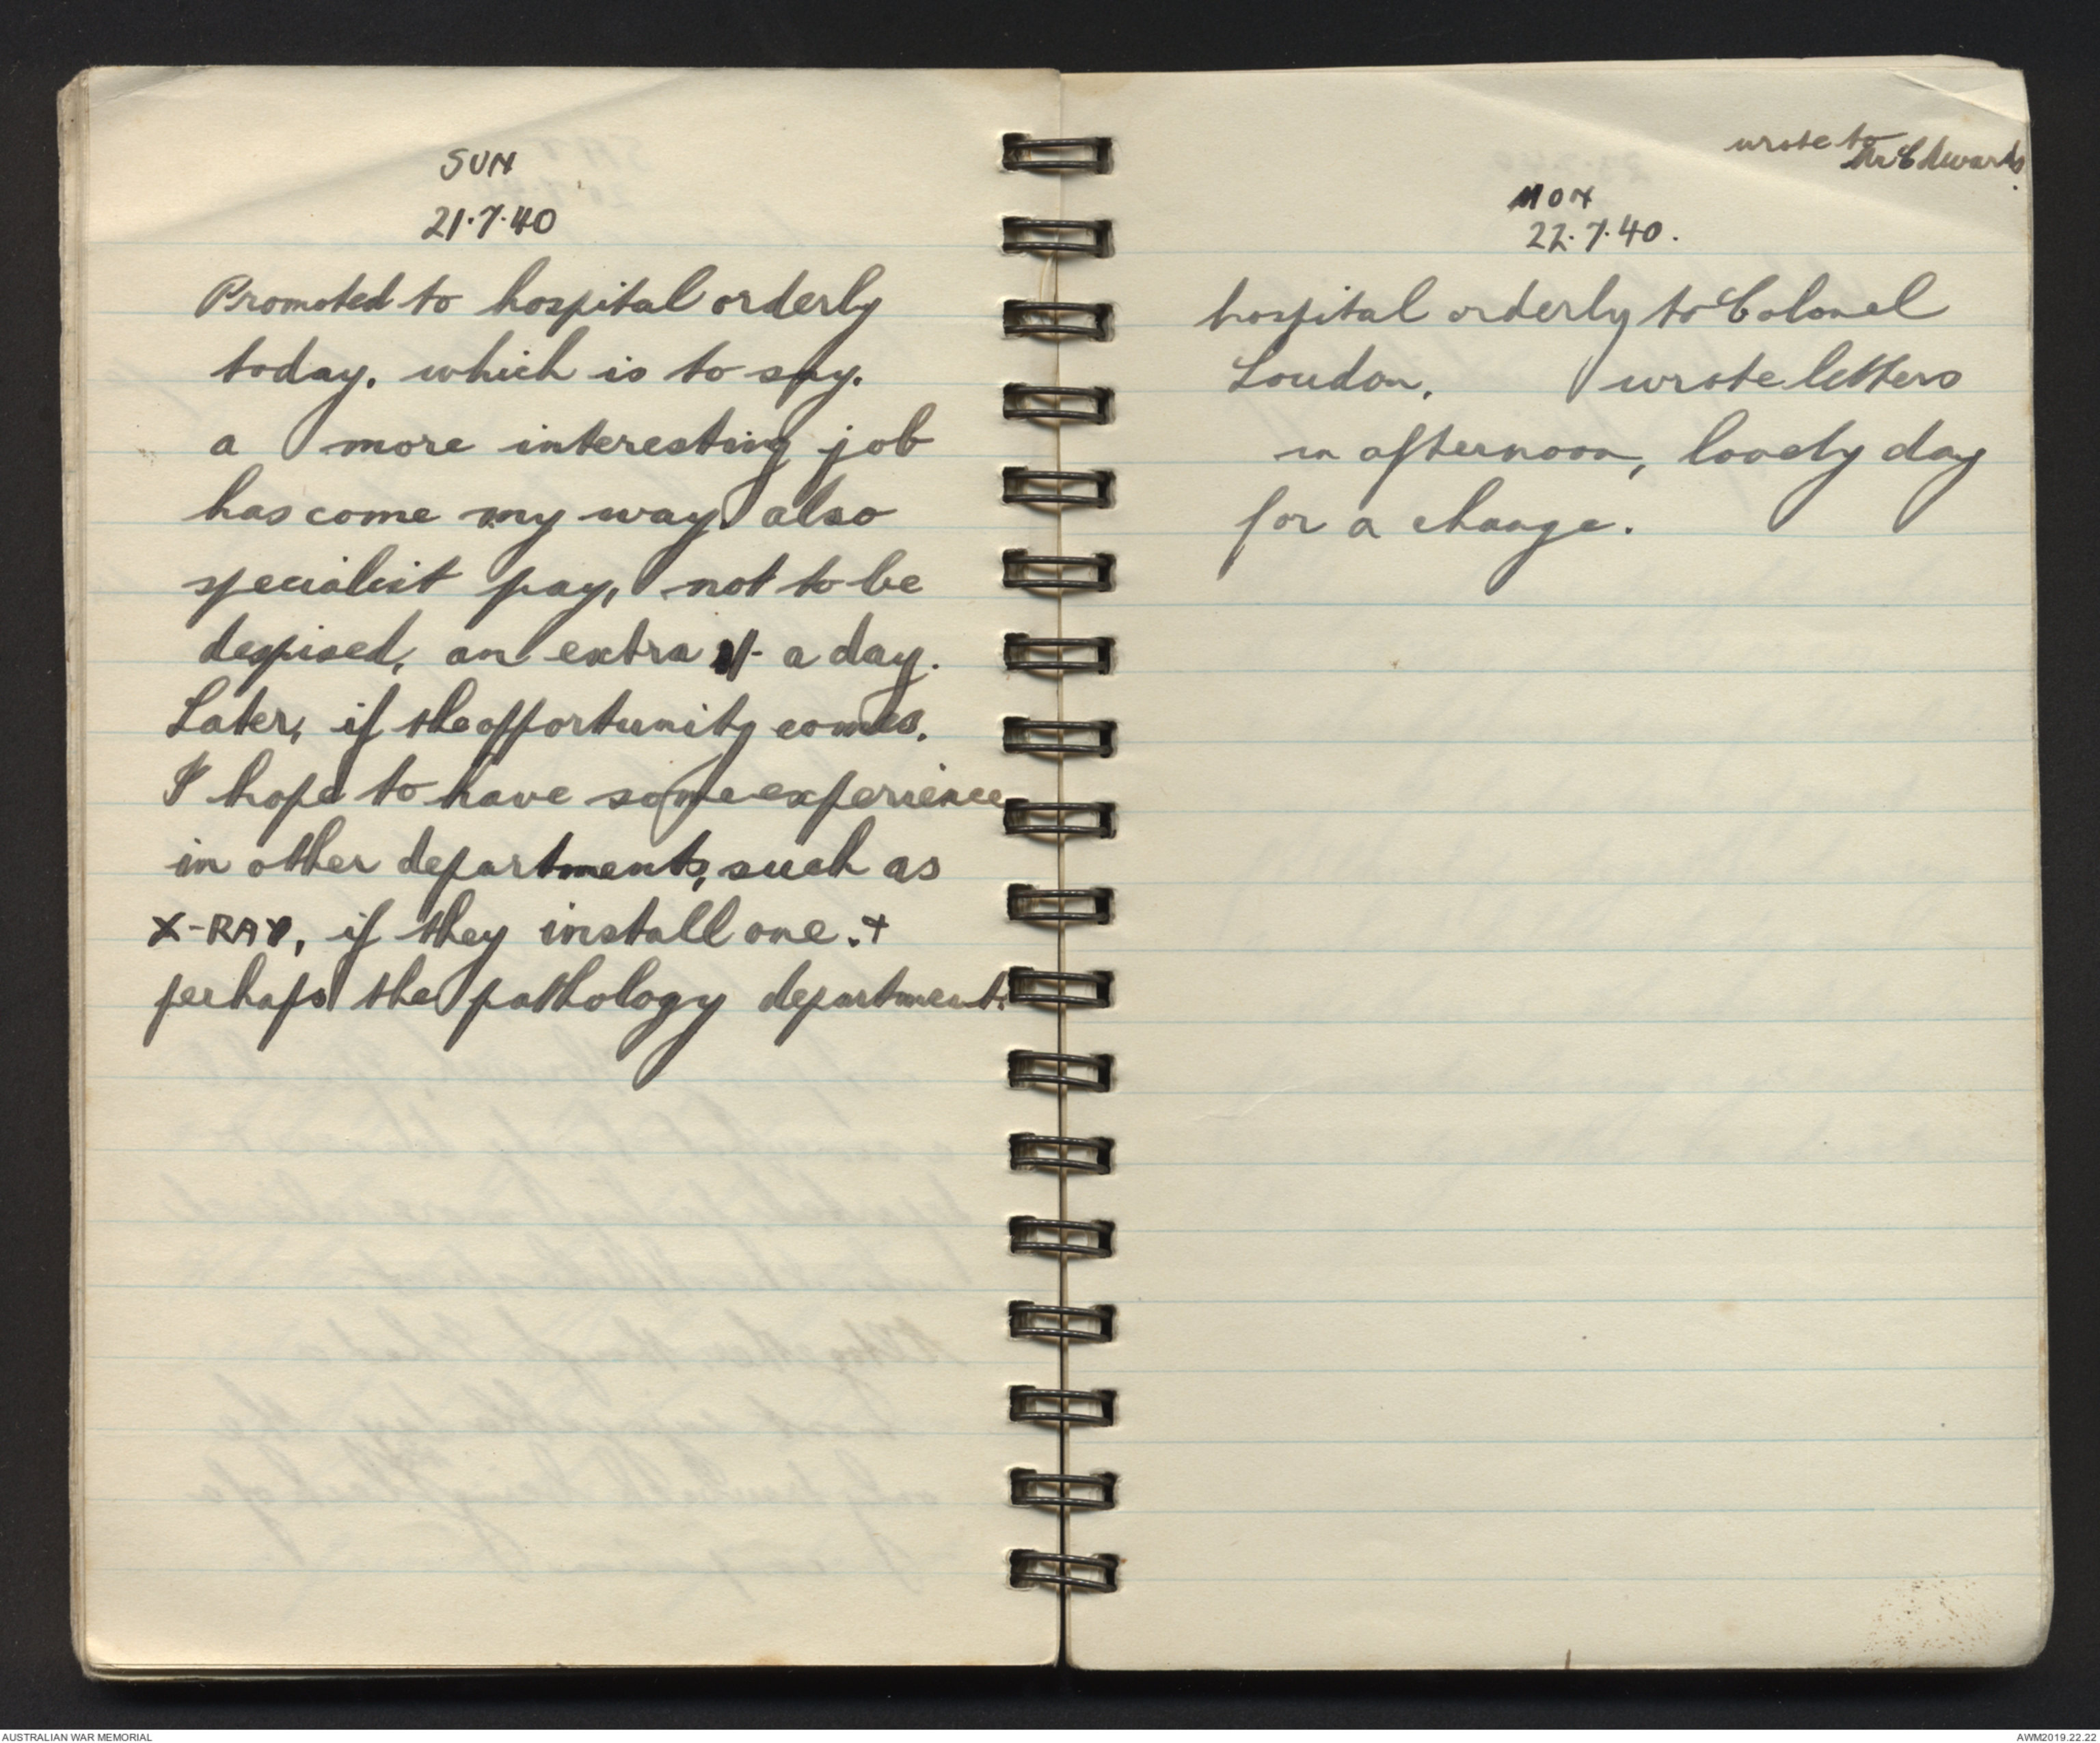 SUN
21.7.40
Promoted to hospital orderly
today. which is to say.
a more interesting job
has come my way. also
specialist pay, not to be
despised, an extra 1/- a day.
Later, if the opportunity comes,
I hope to have some experience
in other departments, such as
X-RAY, if they install one. +
perhaps the pathology department.
wrote to
Mr Edwards.
MON
22.7.40.
hospital orderly to Colonel
Loudon. wrote letters
in afternoon, lovely day
for a change.
AUSTRALIAN WAR MEMORIAL
AWM2019.22.22